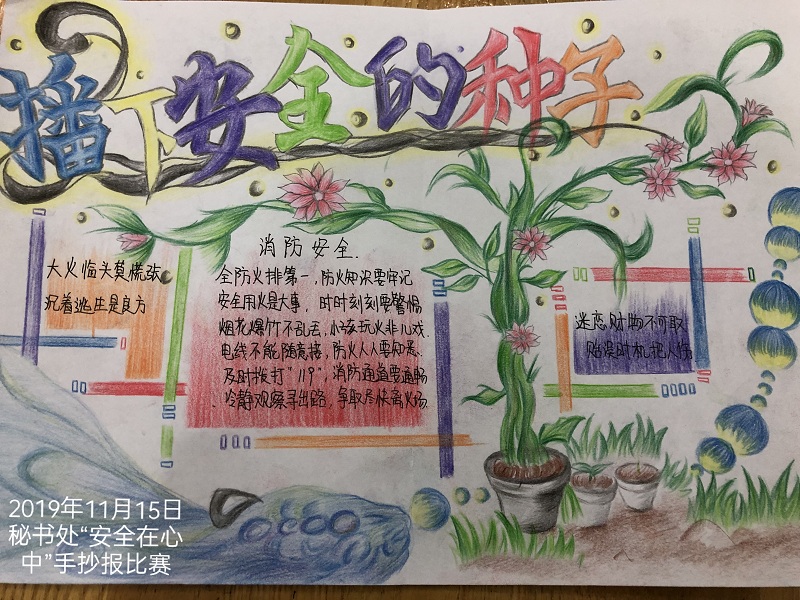 播下安全的种子
大火临头莫慌张
沉着逃生是良方
消防安全.
全防火排第一，防火知识要牢记
安全用火是大事，时时刻刻要警惕
烟花爆竹不乱丢，小孩玩火非儿戏.
电线不能随意接，防火人人要知悉.
及时拨打“119”，消防通道要通畅
冷静观察寻出路，争取尽快离火场.
迷恋财物不可取
贻误时机把人伤
2019年11月15日
秘书处“安全在心
中”手抄报比赛